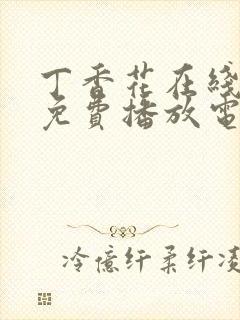 丁香花在綫
免費播放電
冷億纤柔纤凌